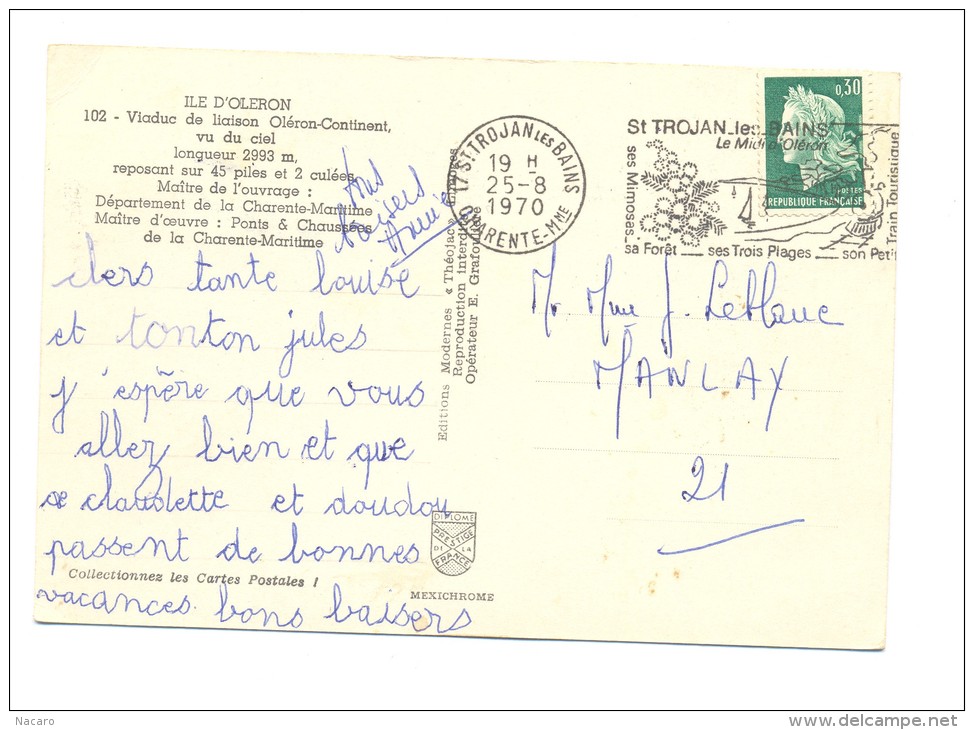 ILE D'OLERON
102 - Viaduc de liaison Oléron-Continent,
vu du ciel
longueur 2993 m,
reposant sur 45 piles et 2 culées
Maître de l'ouvrage :
Département de la Charente-Maritime
Maître d'œuvre : Ponts & Chaussées
de la Charente-Maritime
baisers
Annie
chers tante louise
et tonton jules
j'espère que vous
allez bien et que
claudette et doudou
passent de bonnes
Collectionnez les Cartes Postales !
vacances. bons baisers
Editions Modernes « Théojac Limoges
Reproduction interdite
Opérateur E. Grafouille
DIPLOME
PRESTIGE
DE LA
FRANCE
MEXICHROME
17 St TROJAN LES BAINS
19 H
25-8
1970
CHARENTE-Mme
St TROJAN_les_BAINS
Le Midi d'Oléron
ses Mimosas_
sa Forêt __ ses Trois Plages __ son Petit
Train Touristique
0,30
POSTES
REPUBLIQUE FRANÇAISE
Mr Mme J. Leblanc
MANLAY
21
Nacaro
www.delcampe.net